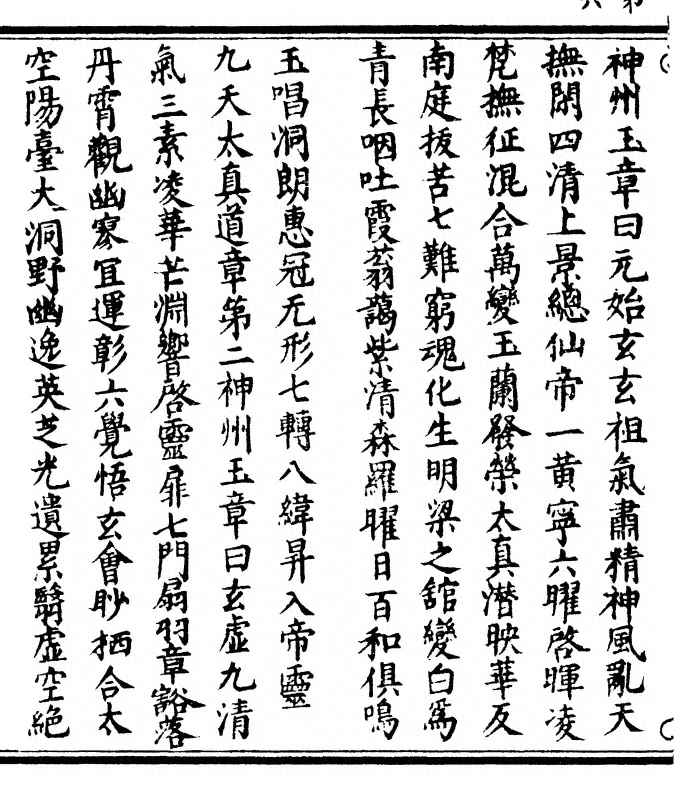 神州玉章曰元始玄玄祖氣肅精神風亂天
撫閑四清上景總仙帝一黃寧六曜啓暉凌
梵撫征混合萬變玉蘭發榮太真潛映華反
南庭拔苦七難窮魂化生明梁之舘變白爲
青長咽吐霞蓊藹紫清森羅曜日百和俱鳴
玉唱洞朗惠冠无形七轉八緯昇入帝靈
九天太真道章第二神州玉章曰玄虛九清
氣三素凌華芒淵響啓靈扉七門扇羽章豁落
丹霄觀幽寥冝運彰六覺悟玄會眇栖合太
空陽臺大洞野幽逸英芝光遺累翳虛空絕